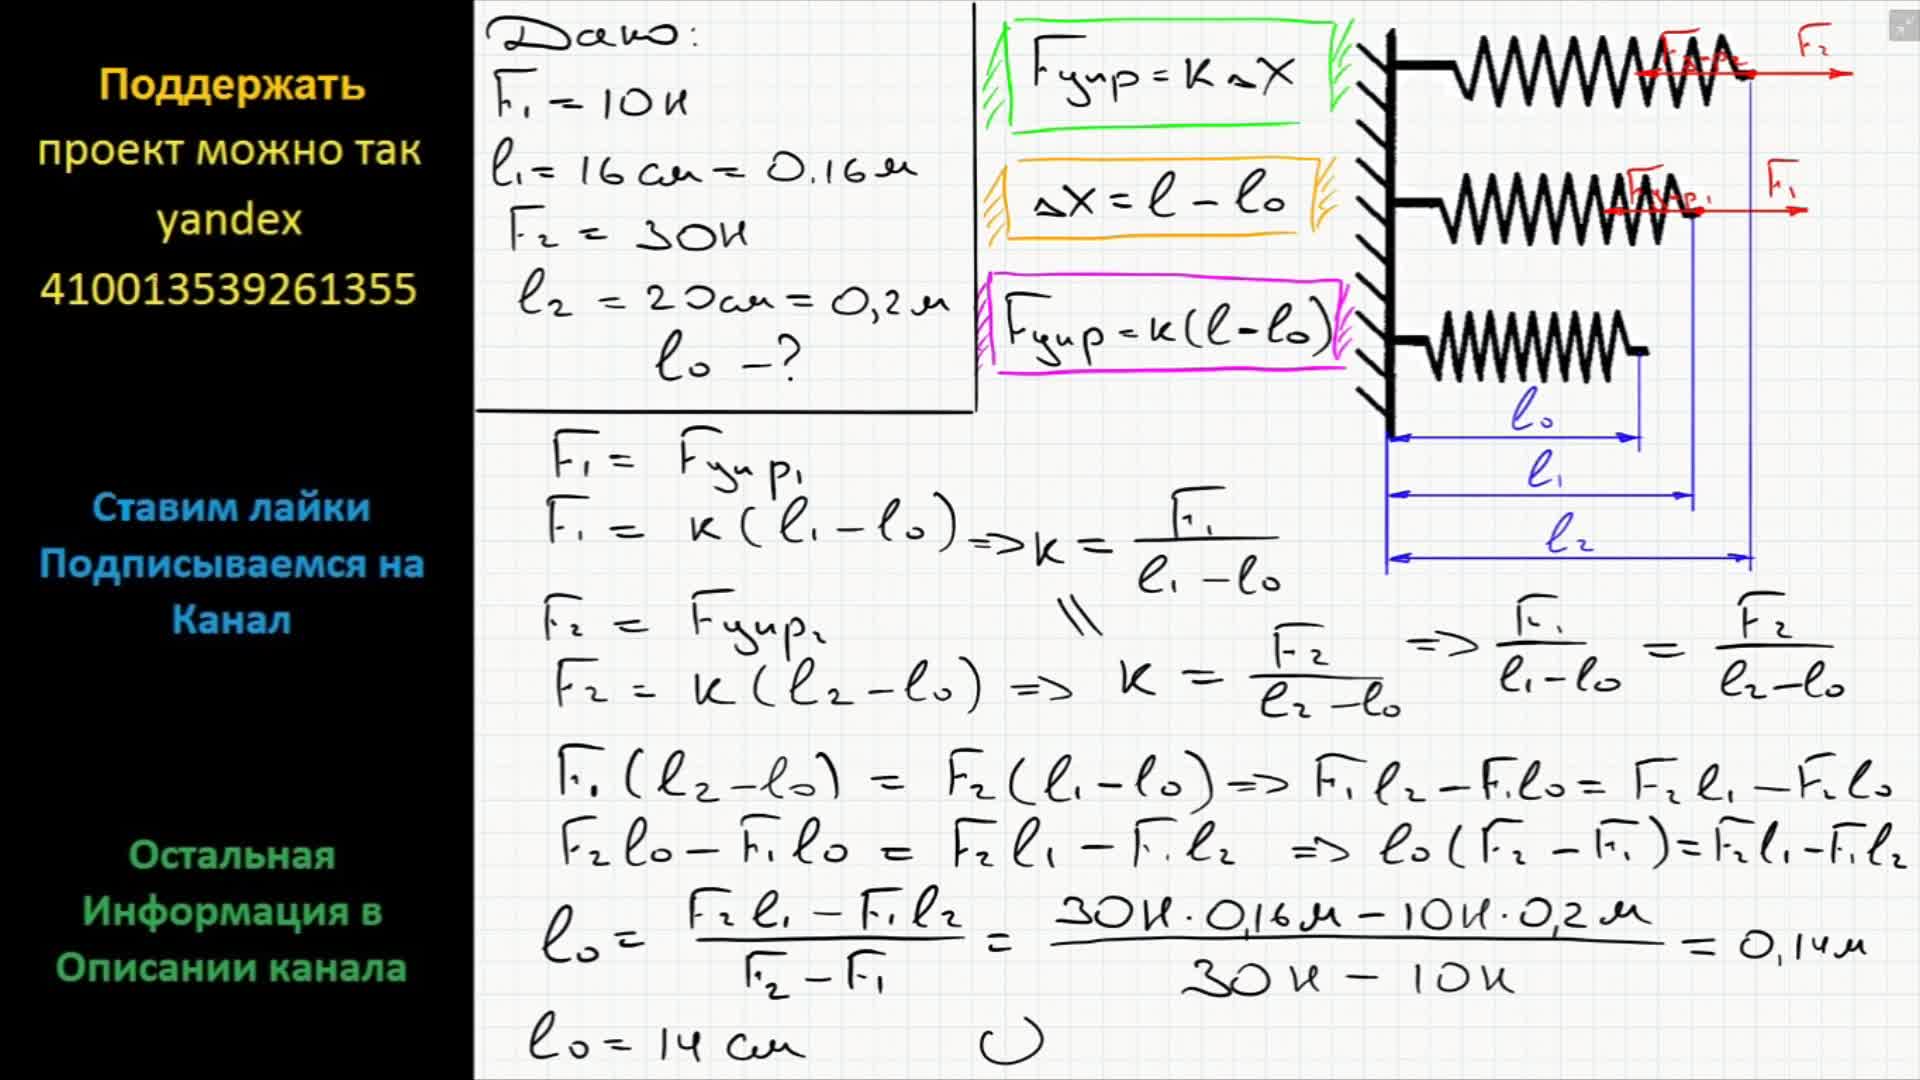 Поддержать
проект можно так
yandex
410013539261355
Ставим лайки
Подписываемся на
Канал
Остальная
Информация в
Описании канала
Дано:
F₁ = 10 Н
l₁ = 16 см = 0.16 м
F₂ = 30 Н
l₂ = 20 см = 0,2 м
l₀ - ?
Fупр = к △X
△X = l - l₀
Fупр = к(l - l₀)
Fупр₂ F₂
Fупр₁ F₁
l₀
l₁
l₂
F₁ = Fупр₁
F₁ = к(l₁ - l₀) => к = F₁ / (l₁ - l₀)
F₂ = Fупр₂ \\
F₂ = к(l₂ - l₀) => к = F₂ / (l₂ - l₀) => F₁ / (l₁ - l₀) = F₂ / (l₂ - l₀)
F₁(l₂ - l₀) = F₂(l₁ - l₀) => F₁l₂ - F₁l₀ = F₂l₁ - F₂l₀
F₂l₀ - F₁l₀ = F₂l₁ - F₁l₂ => l₀(F₂ - F₁) = F₂l₁ - F₁l₂
l₀ = (F₂l₁ - F₁l₂) / (F₂ - F₁) = (30Н · 0,16м - 10Н · 0,2м) / (30Н - 10Н) = 0,14м
l₀ = 14 см